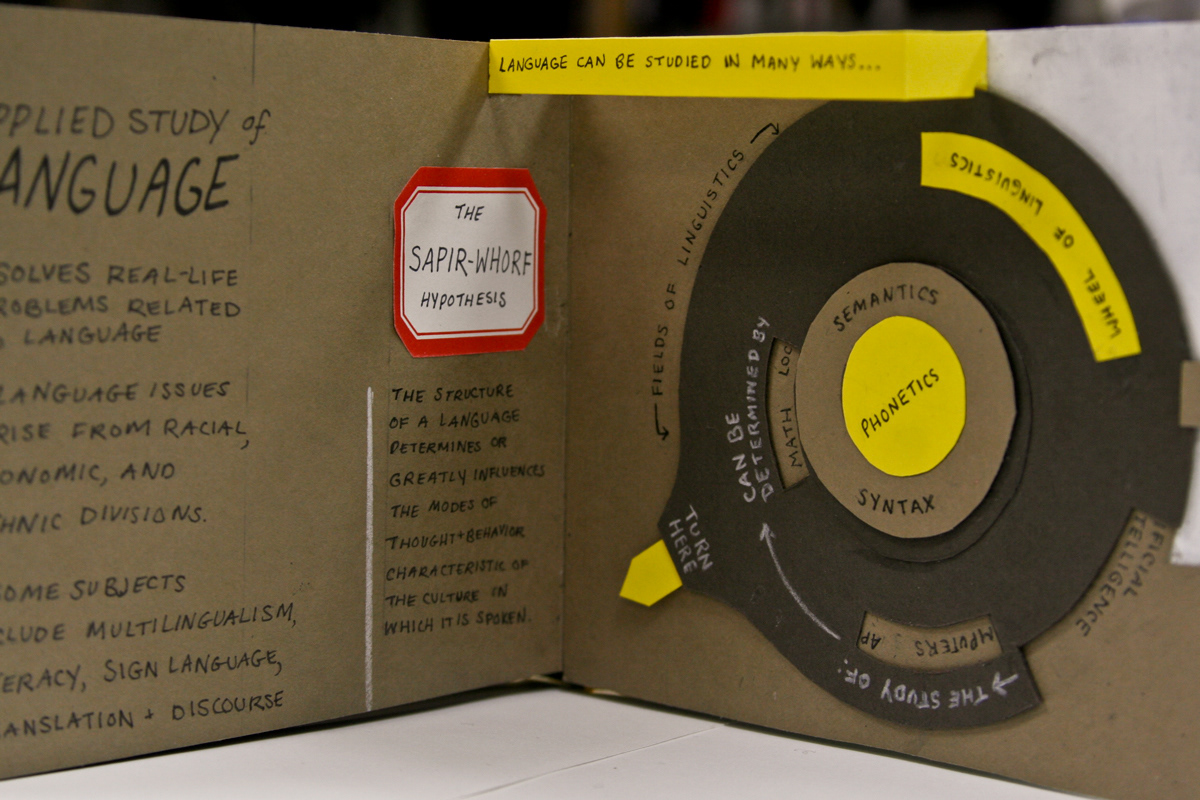 PPLIED STUDY of
ANGUAGE
SOLVES REAL-LIFE
ROBLEMS RELATED
LANGUAGE
LANGUAGE ISSUES
RISE FROM RACIAL,
ONOMIC, AND
HNIC DIVISIONS.
SOME SUBJECTS
CLUDE MULTILINGUALISM,
ERACY, SIGN LANGUAGE,
ANSLATION + DISCOURSE
THE
SAPIR-WHORF
HYPOTHESIS
THE STRUCTURE
OF A LANGUAGE
DETERMINES OR
GREATLY INFLUENCES
THE MODES OF
THOUGHT+BEHAVIOR
CHARACTERISTIC OF
THE CULTURE IN
WHICH IT IS SPOKEN.
LANGUAGE CAN BE STUDIED IN MANY WAYS...
FIELDS OF LINGUISTICS
WHEEL OF LINGUISTICS
SEMANTICS
PHONETICS
SYNTAX
MATH LOG
CAN BE
DETERMINED BY
TURN
HERE
MPUTERS AP
THE STUDY OF:
FICIAL
TELLIGENCE